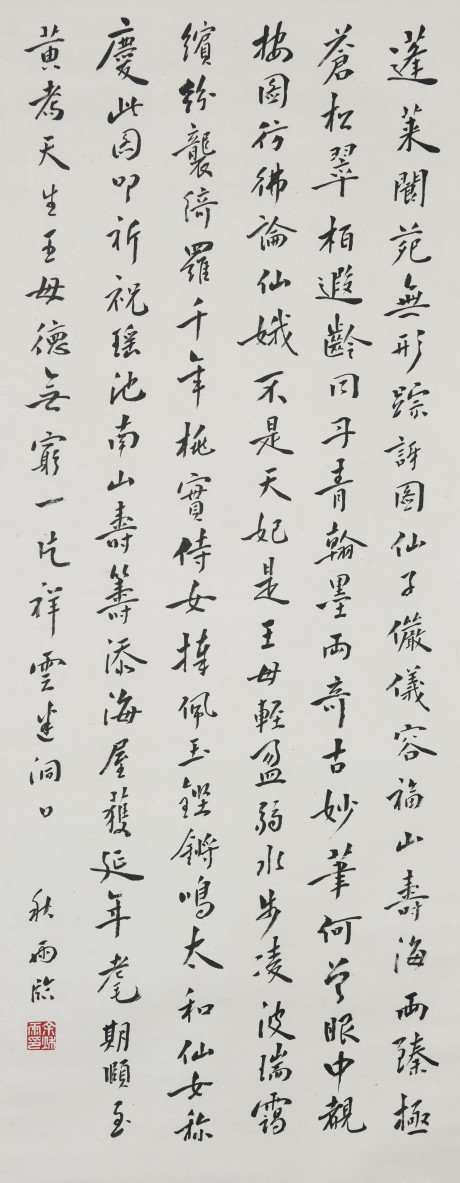 蓬萊閬苑無形踪訝圖仙子儼儀容福山壽海兩臻極
蒼松翠栢遐齡同丹青翰墨兩奇古妙筆何曾眼中覩
按圖彷彿論仙娥不是天妃是王母輕盈弱水步凌波瑞靄
繽紛襲綺羅千年桃實侍女捧佩玉鏗鏘鳴太和仙女称
慶此因叩祈祝瑤池南山壽籌添海屋獲延年耄期頤至
黃耇天生王母德無窮一片祥雲迷洞口
秋雨臨
余秋雨印